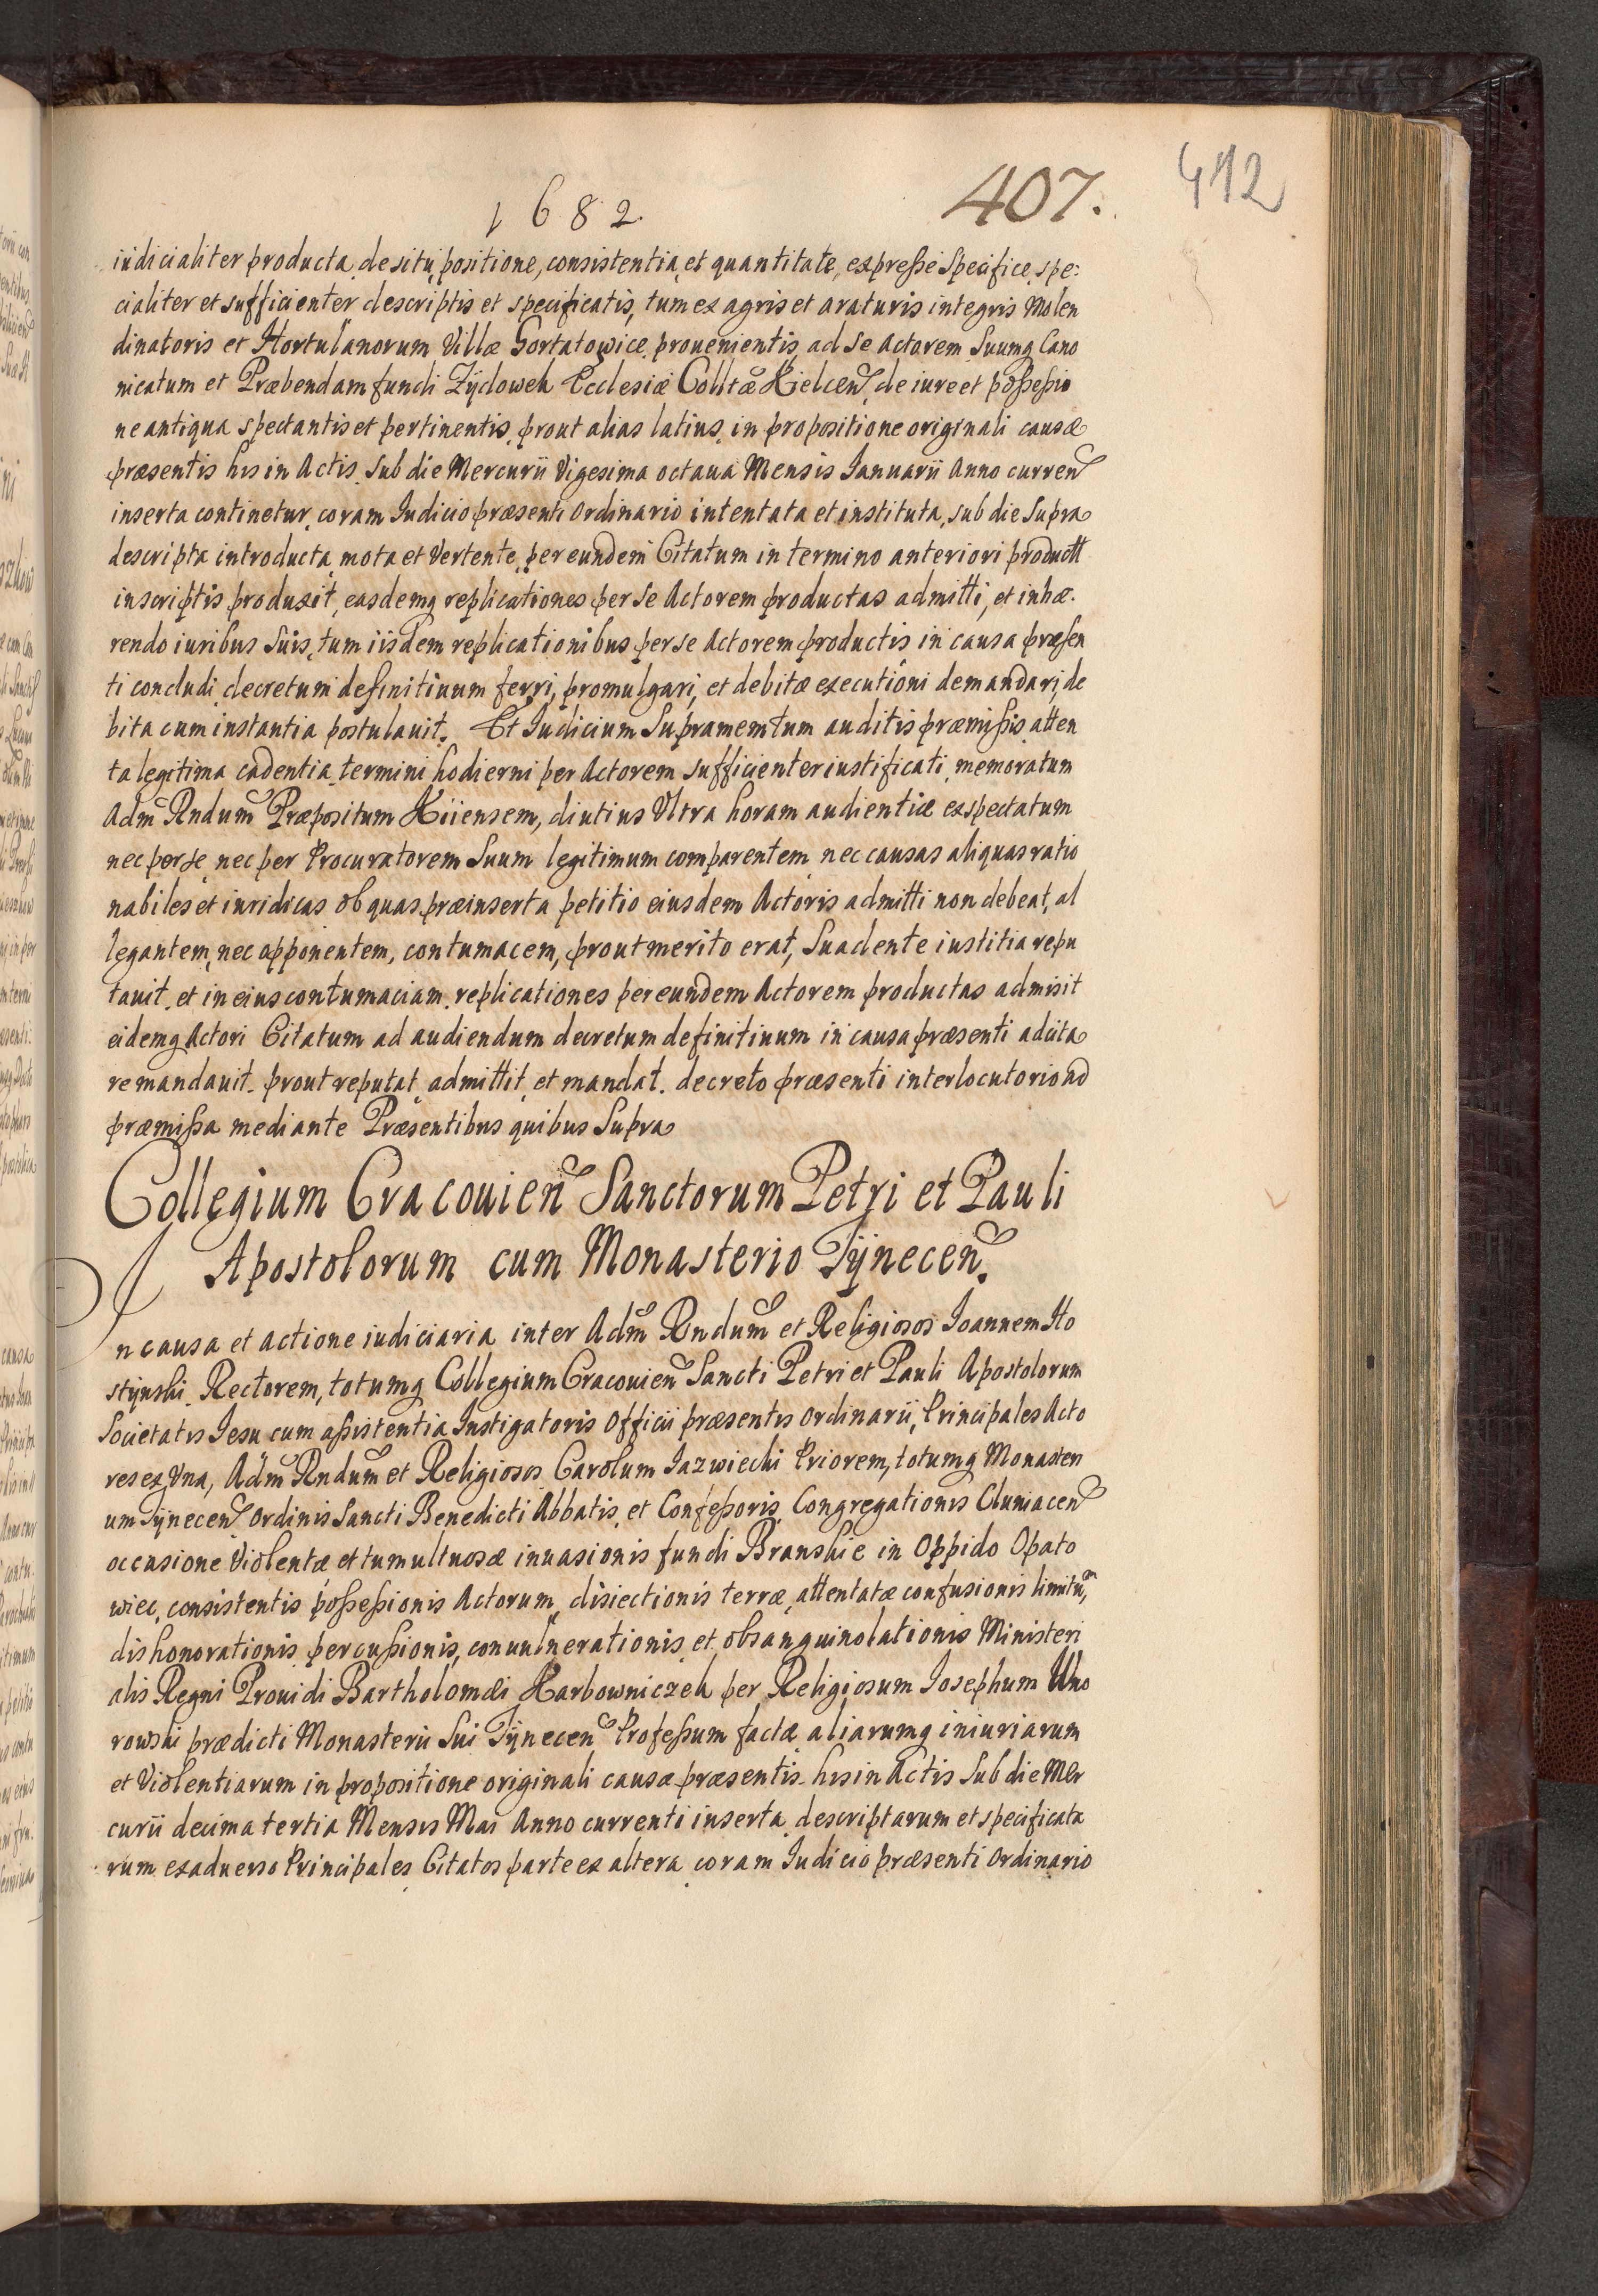 1682.
407.
412
iudicialiter producta, de situ, positione, consistentia, et quantitate, expresse specifice, spe:
cialiter et sufficienter descriptis et specificatis, tum ex agris et araturis integris Molen
dinatoris et Hortulanorum Villæ Gortatowice prouenientis, ad se Actorem Suumq Cano
nicatum et Præbendam fundi Zÿdowek Ecclesiæ Colltæ Kielcen, de iure et possessio
ne antiqua spectantis et pertinentis, prout alias latius, in propositione originali causæ
præsentis his in Actis, sub die Mercurii Vigesima octaua Mensis Ianuarii Anno curren
inserta continetur, coram Iudicio præsenti Ordinario intentata et instituta, sub die Supra
descripta introducta, mota et Vertente, per eundem Citatum in termino anteriori productt
in scriptis produxit, easdemq replicationes per se Actorem productas admitti, et inhæ.
rendo iuribus Suis, tum iisdem replicationibus per se Actorem productis in causa præsen
ti concludi, decretum definitiuum ferri, promulgari, et debitæ executioni demandari, de
bita cum instantia postulauit. Et Iudicium Supramemtum auditis præmissis, atten
ta legitima cadentia termini hodierni per Actorem sufficienter iustificati, memoratum
Adm Rndum Præpositum Kiiensem, diutius Vltra horam audientiæ exspectatum
nec per se, nec per Procuratorem Suum legitimum comparentem, nec causas aliquas ratio
nabiles et iuridicas ob quas præinserta petitio eiusdem Actoris admitti non debeat, al
legantem, nec opponentem, contumacem, prout merito erat, Suadente iustitia repu
tauit, et in eius contumaciam, replicationes per eundem Actorem productas admisit
eidemq Actori Citatum ad audiendum decretum definitiuum in causa præsenti adcita
re mandauit, prout reputat, admittit, et mandat. decreto præsenti interlocutorio ad
præmissa mediante Præsentibus quibus Supra
Collegium Cracouien Sanctorum Petri et Pauli
Apostolorum cum Monasterio Tÿnecen.
In causa et actione iudiciaria inter Adm Rndum et Religiosos Ioannem Ho
stÿnski Rectorem, totumq Collegium Cracouien Sancti Petri et Pauli Apostolorum
Societatis Iesu cum assistentia Instigatoris Officii præsentis Ordinarii, Principales Acto
res ex Vna, Adm Rndum et Religiosos Carolum Iazwiecki Priorem, totumq Monasteri
um Tÿnecen Ordinis Sancti Benedicti Abbatis, et Confessoris, Congregationis Cluniacen
occasione Violentæ et tumultuosæ inuasionis fundi Branskie in Oppido Opato
wiec, consistentis possessionis Actorum, disiectionis terræ, attentatæ confusionis limitum,
dishonorationis, percussionis, conuulnerationis, et obsanguinolationis Ministeri
alis Regni Prouidi Bartholomæi Karbowniczek per Religiosum Iosephum Uho
rowski prædicti Monasterii Sui Tÿnecen Professum factæ, aliarumq iniuriarum
et Violentiarum in propositione originali causæ præsentis his in Actis Sub die Mer
curii decima tertia Mensis Mai Anno currenti inserta, descriptarum et specificata
rum ex aduerso Principales Citatos parte ex altera, coram Iudicio præsenti Ordinario